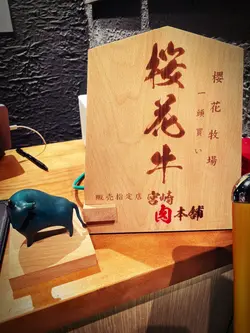 櫻花牧場
一頭買い
桜花牛
販売指定店
宮崎
肉本舗